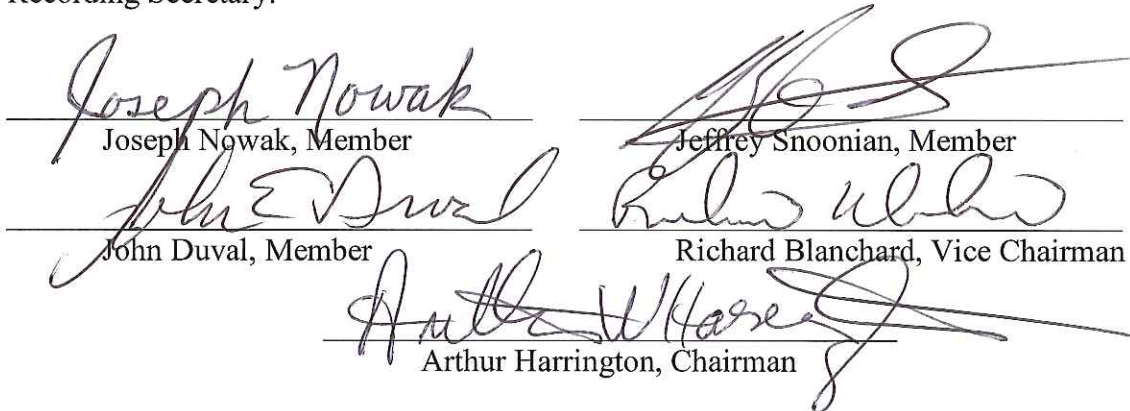 Recording Secretary.
Joseph Nowak
Joseph Nowak, Member
Jeffrey Snoonian, Member
John E Duval
John Duval, Member
Richard Blanchard, Vice Chairman
Arthur W Harrington
Arthur Harrington, Chairman